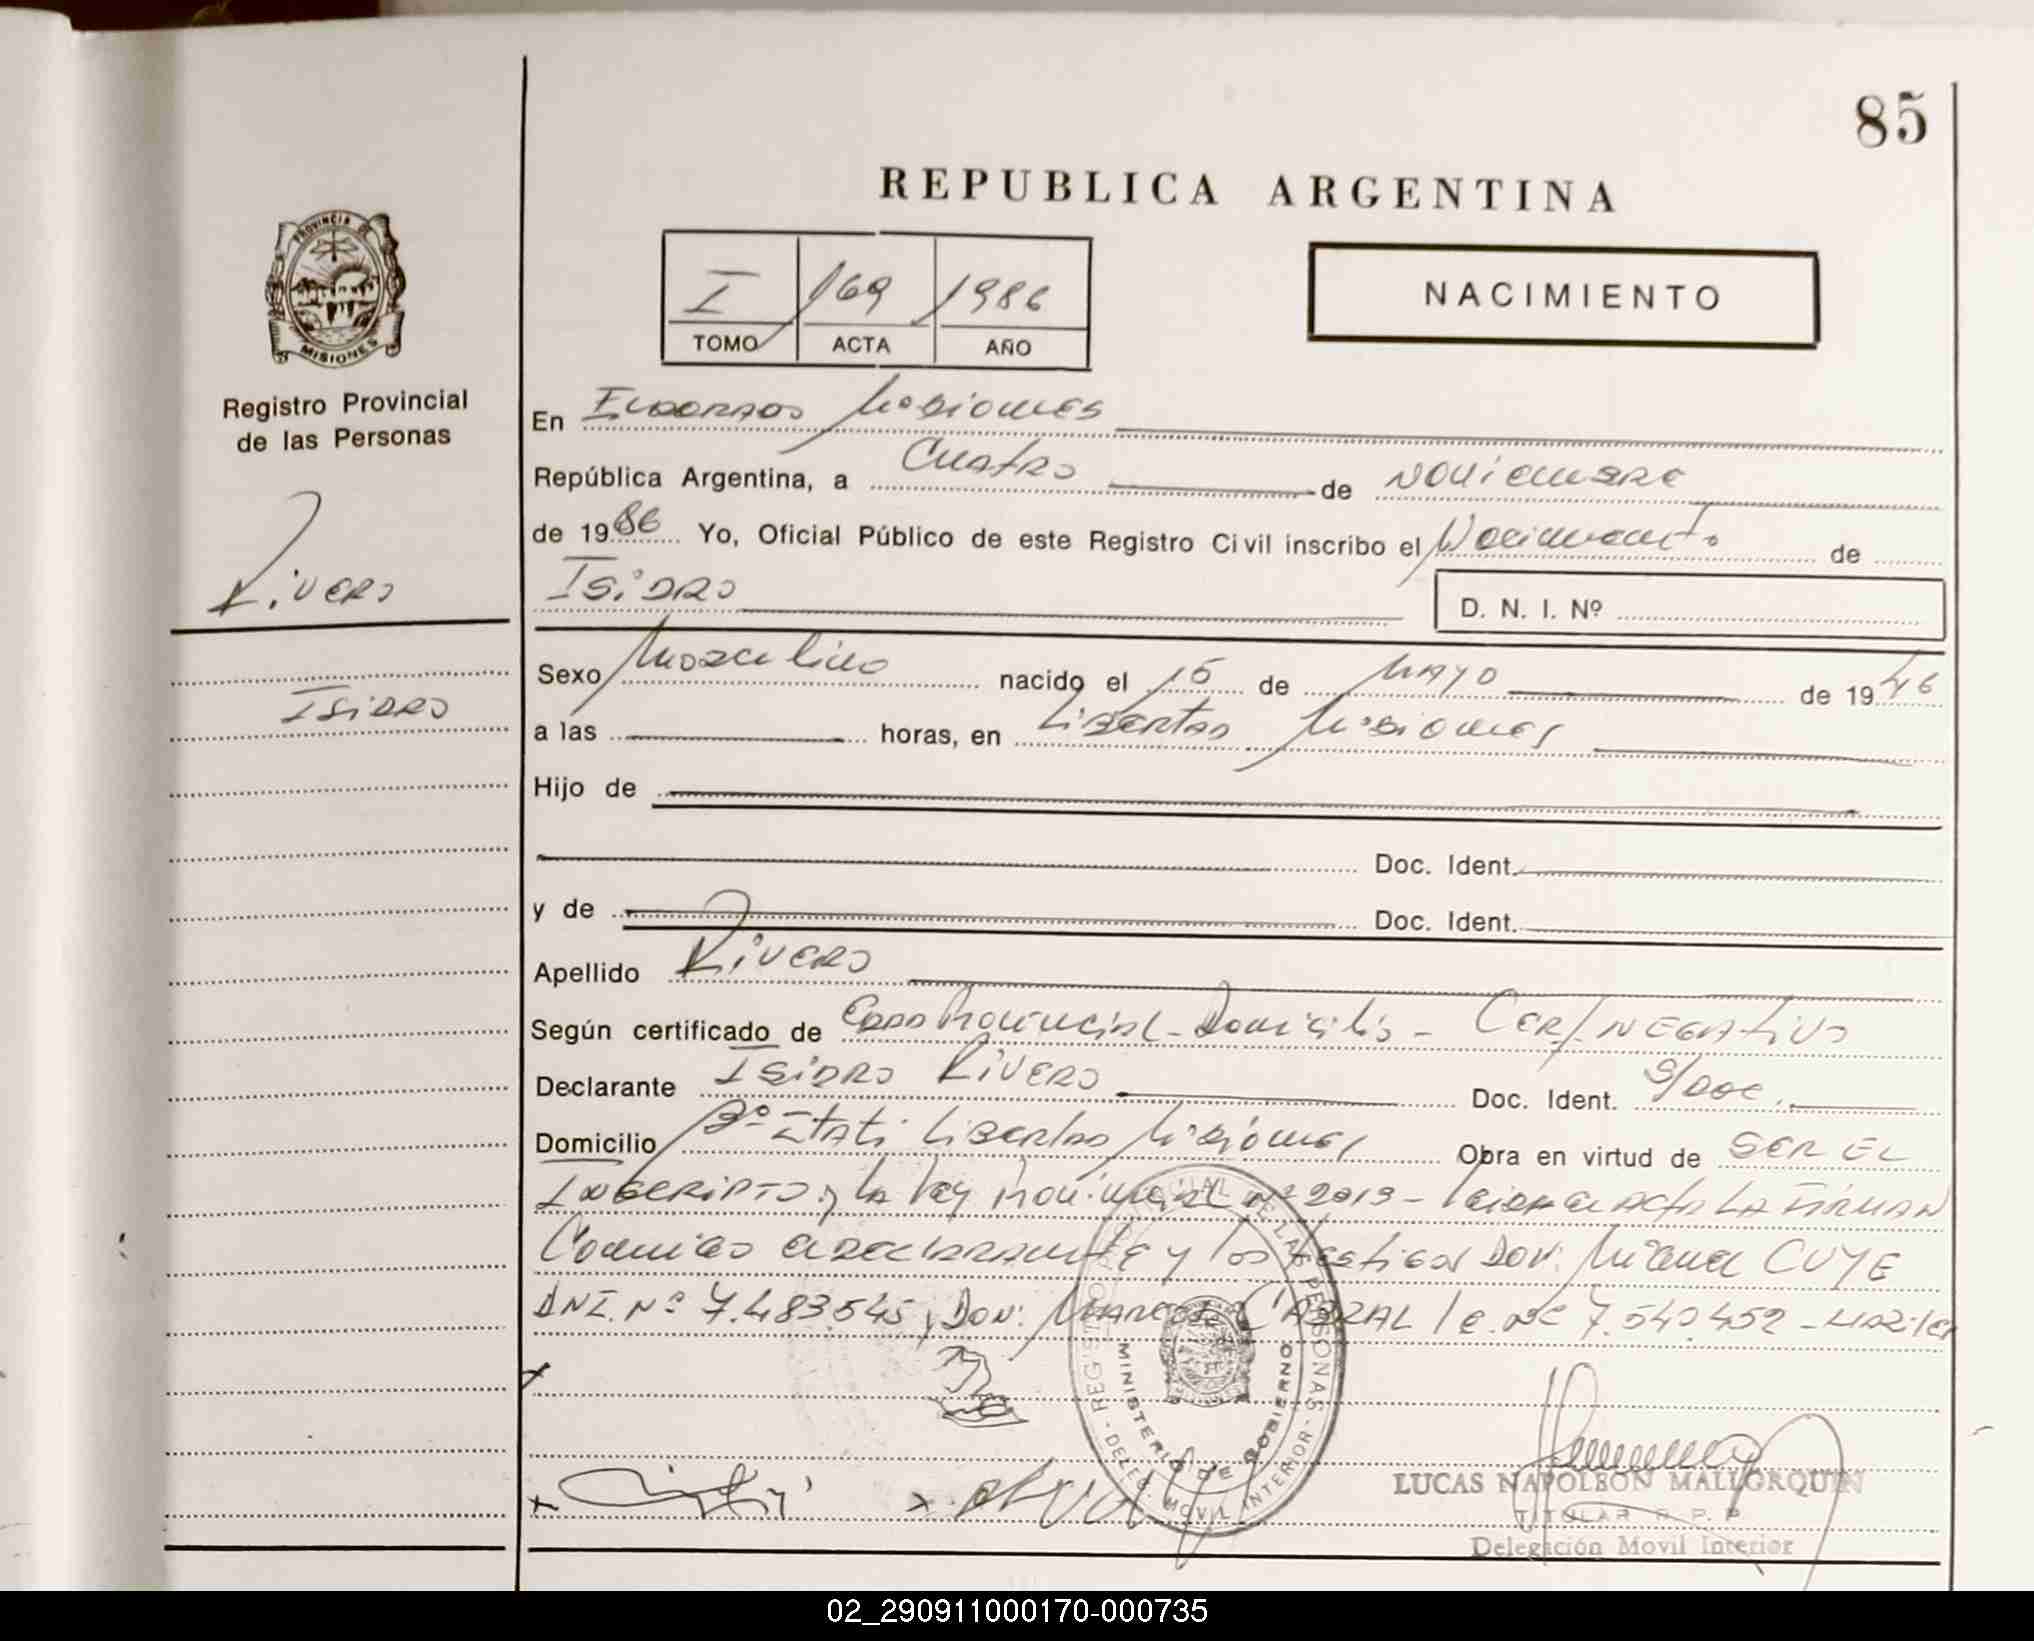 85
REPUBLICA ARGENTINA
PROVINCIA DE
MISIONES
I 169 1986
TOMO ACTA AÑO
NACIMIENTO
Registro Provincial
de las Personas
Rivero
Isidro
En Eldorado Misiones
República Argentina, a Cuatro de Noviembre
de 1986 Yo, Oficial Público de este Registro Civil inscribo el Nacimiento de
Isidro
D. N. I. Nº
Sexo Masculino nacido el 15 de Mayo de 1946
a las horas, en Libertad Misiones
Hijo de
Doc. Ident.
y de Doc. Ident.
Apellido Rivero
Según certificado de Edad Provincial - Domicilio - Cert/Negativo
Declarante Isidro Rivero Doc. Ident. S/Doc.
Domicilio Bº Itati Libertad Misiones Obra en virtud de ser el
Inscripto y la Ley Provincial Nº 2013 - acta la firman
Conmigo el declarante y los testigos Don: Miguel CUYE
DNI. Nº 7.483.545, Don: Marcos CABRAL L.E. Nº 7.540.452 -
REGISTRO PROVINCIAL DE LAS PERSONAS - DELEG. MOVIL INTERIOR -
MINISTERIO DE GOBIERNO
LUCAS NAPOLEON MALLORQUIN
TITULAR R. P. P.
Delegación Movil Interior
02_290911000170-000735